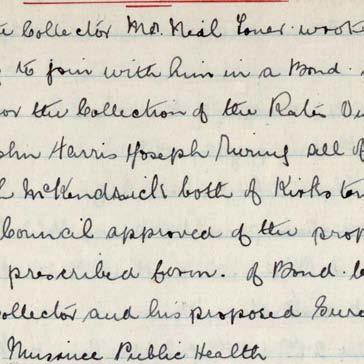 e Collector Mr. Neal Toner wrote
g to join with him in a Bond.
or the Collection of the Rates Du
ohn Harris Joseph Twining all of
h McKendrick both of Kirkstow
Council approved of the prop
prescribed form. of Bond. be
ollector and his proposed Sure
Nuisance Public Health